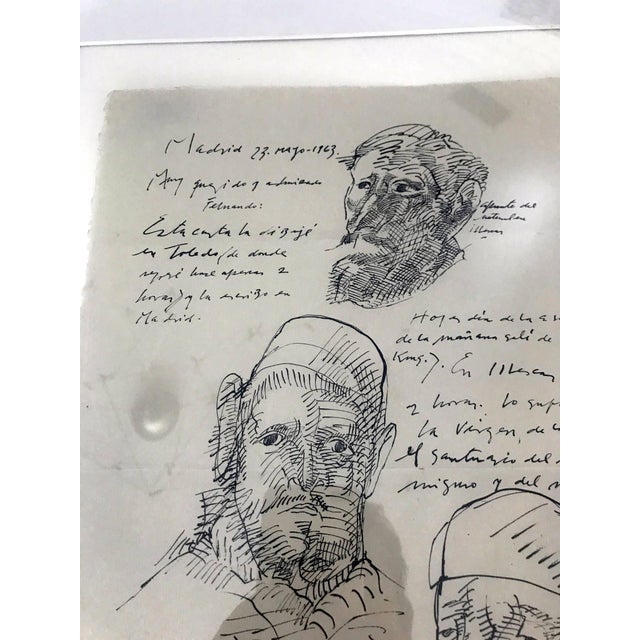 Madrid 23. mayo-1963.
Muy querido y admirado
Fernando:
Esta carta la dibujé
en Toledo (de donde
regresé hace apenas 2
horas) y la escribo en
Madrid.
apunte del
natural en
Illescas
Hoy es día de la
de la mañana salí de
En Illescas
2 horas. Lo
la Virgen, de
el Santuario del
mismo y del